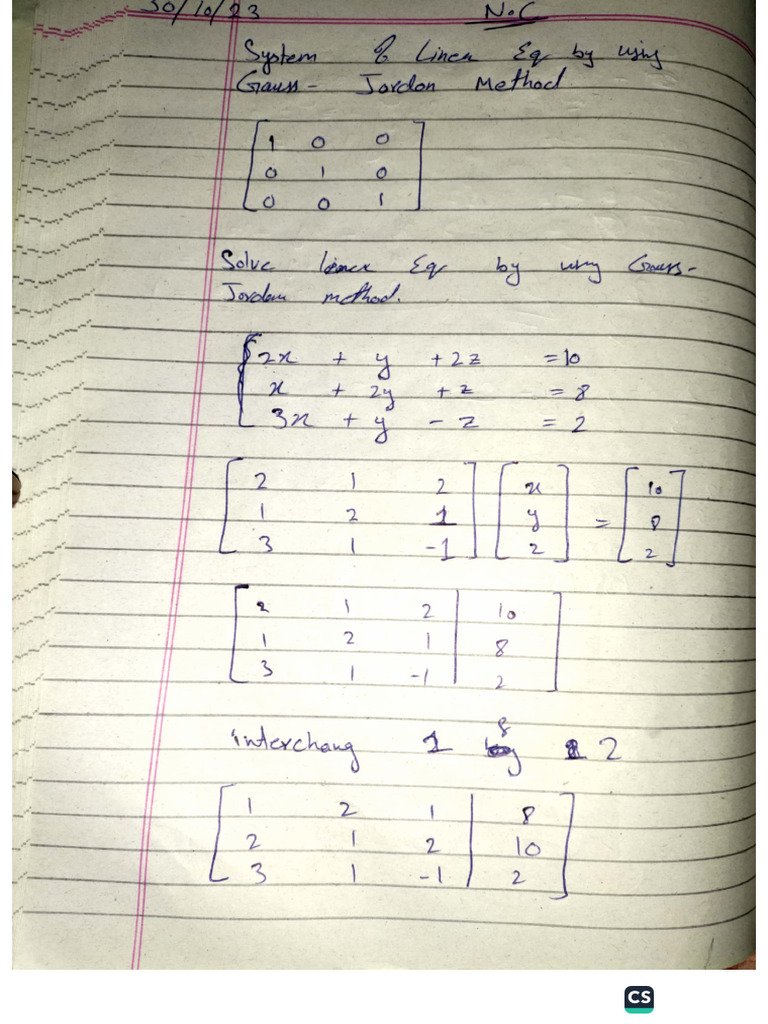 30/10/23 N.C
System of Linear Eq by using
Gauss- Jordon Method
1 0 0
0 1 0
0 0 1
Solve linear Eq by using Gauss-
Jordan method.
2x + y + 2z = 10
x + 2y + z = 8
3x + y - z = 2
2 1 2 x 10
1 2 1 y = 8
3 1 -1 z 2
2 1 2 | 10
1 2 1 | 8
3 1 -1 | 2
interchang 1 & 2
1 2 1 | 8
2 1 2 | 10
3 1 -1 | 2
CS